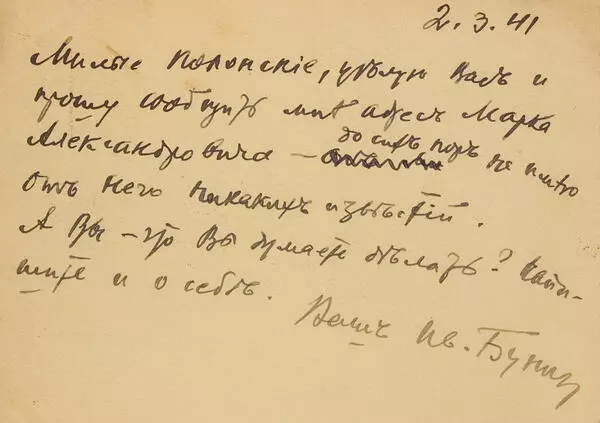 2.3.41
Милые Полонскіе, цѣлую Васъ и
прошу сообщить мнѣ адресъ Марка
Александровича – до сихъ поръ не имѣю
отъ него никакихъ извѣстій.
А Вы – что Вы думаете дѣлать? Напи-
шите и о себѣ.
Вашъ Ив. Бунин